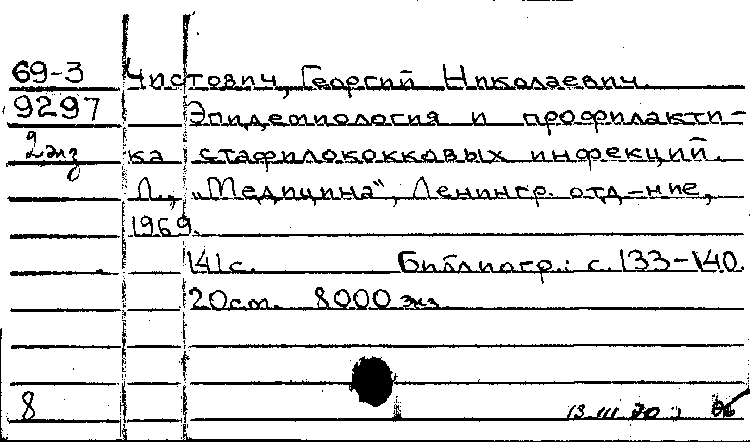 69-3 Чистович, Георгий Николаевич.
9297 Эпидемиология и профилакти-
2 экз ка стафилококковых инфекций.
Л., „Медицина", Ленингр. отд-ние,
1969.
141 с. Библиогр.: с. 133-140.
20 см. 8000 экз.
8 13 III 70